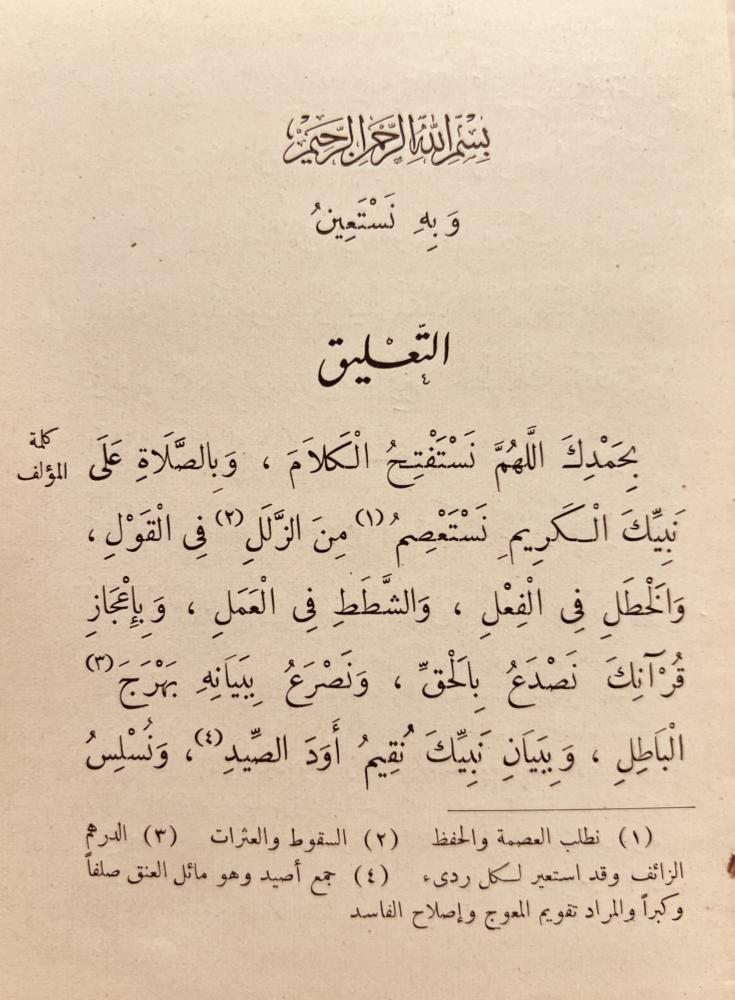 بِسْمِ اللهِ الرَّحْمٰنِ الرَّحِيْمِ
وَ بِهِ نَسْتَعِينُ
التَّعْلِيق
كلمة
المؤلف
بِحَمْدِكَ اللَّهُمَّ نَسْتَفْتِحُ الْكَلاَمَ ، وَبِالصَّلَاةِ عَلَى
نَبِيِّكَ الْكَرِيمِ نَسْتَعْصِمُ (١) مِنَ الزَّلَلِ (٢) فِى الْقَوْلِ ،
وَالْخَطَلِ فِى الْفِعْلِ ، وَالشَّطَطِ فِى الْعَمَلِ ، وَبِإِعْجَازِ
قُرْآنِكَ نَصْدَعُ بِالْحَقِّ ، وَنَصْرَعُ بِبَيَانِهِ بَهْرَجَ (٣)
الْبَاطِلِ ، وَبِبَيَانِ نَبِيِّكَ نُقِيمُ أَوَدَ الصِّيدِ (٤) ، وَنُسْلِسُ
(١) نطلب العصمة والحفظ (٢) السقوط والعثرات (٣) الدرهم
الزائف وقد استعير لكل ردىء (٤) جمع أصيد وهو مائل العنق صلفاً
وكبراً والمراد تقويم المعوج وإصلاح الفاسد